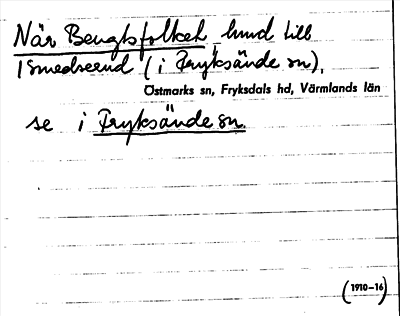 När Bengtsfolket, hund till
1 Smedserud (i Fryksände sn),
Östmarks sn, Fryksdals hd, Värmlands län
se i Fryksände sn
(1910–16)